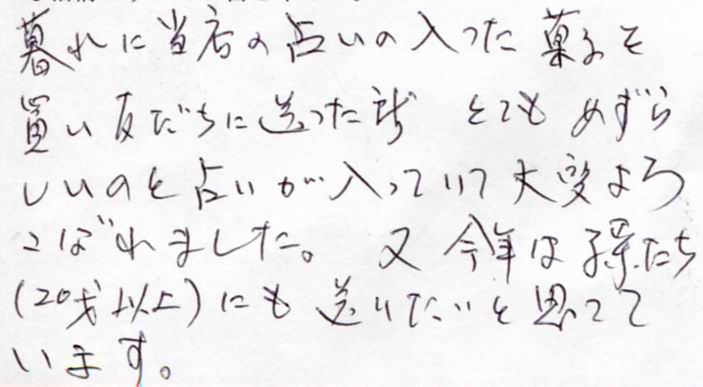 暮れに当店の占いの入った菓子を
買い友だちに送った所 とても めずら
しいのと占いが入っていて大変よろ
こばれました。 又 今年は孫たち
(20才以上)にも 送りたいと思って
います。